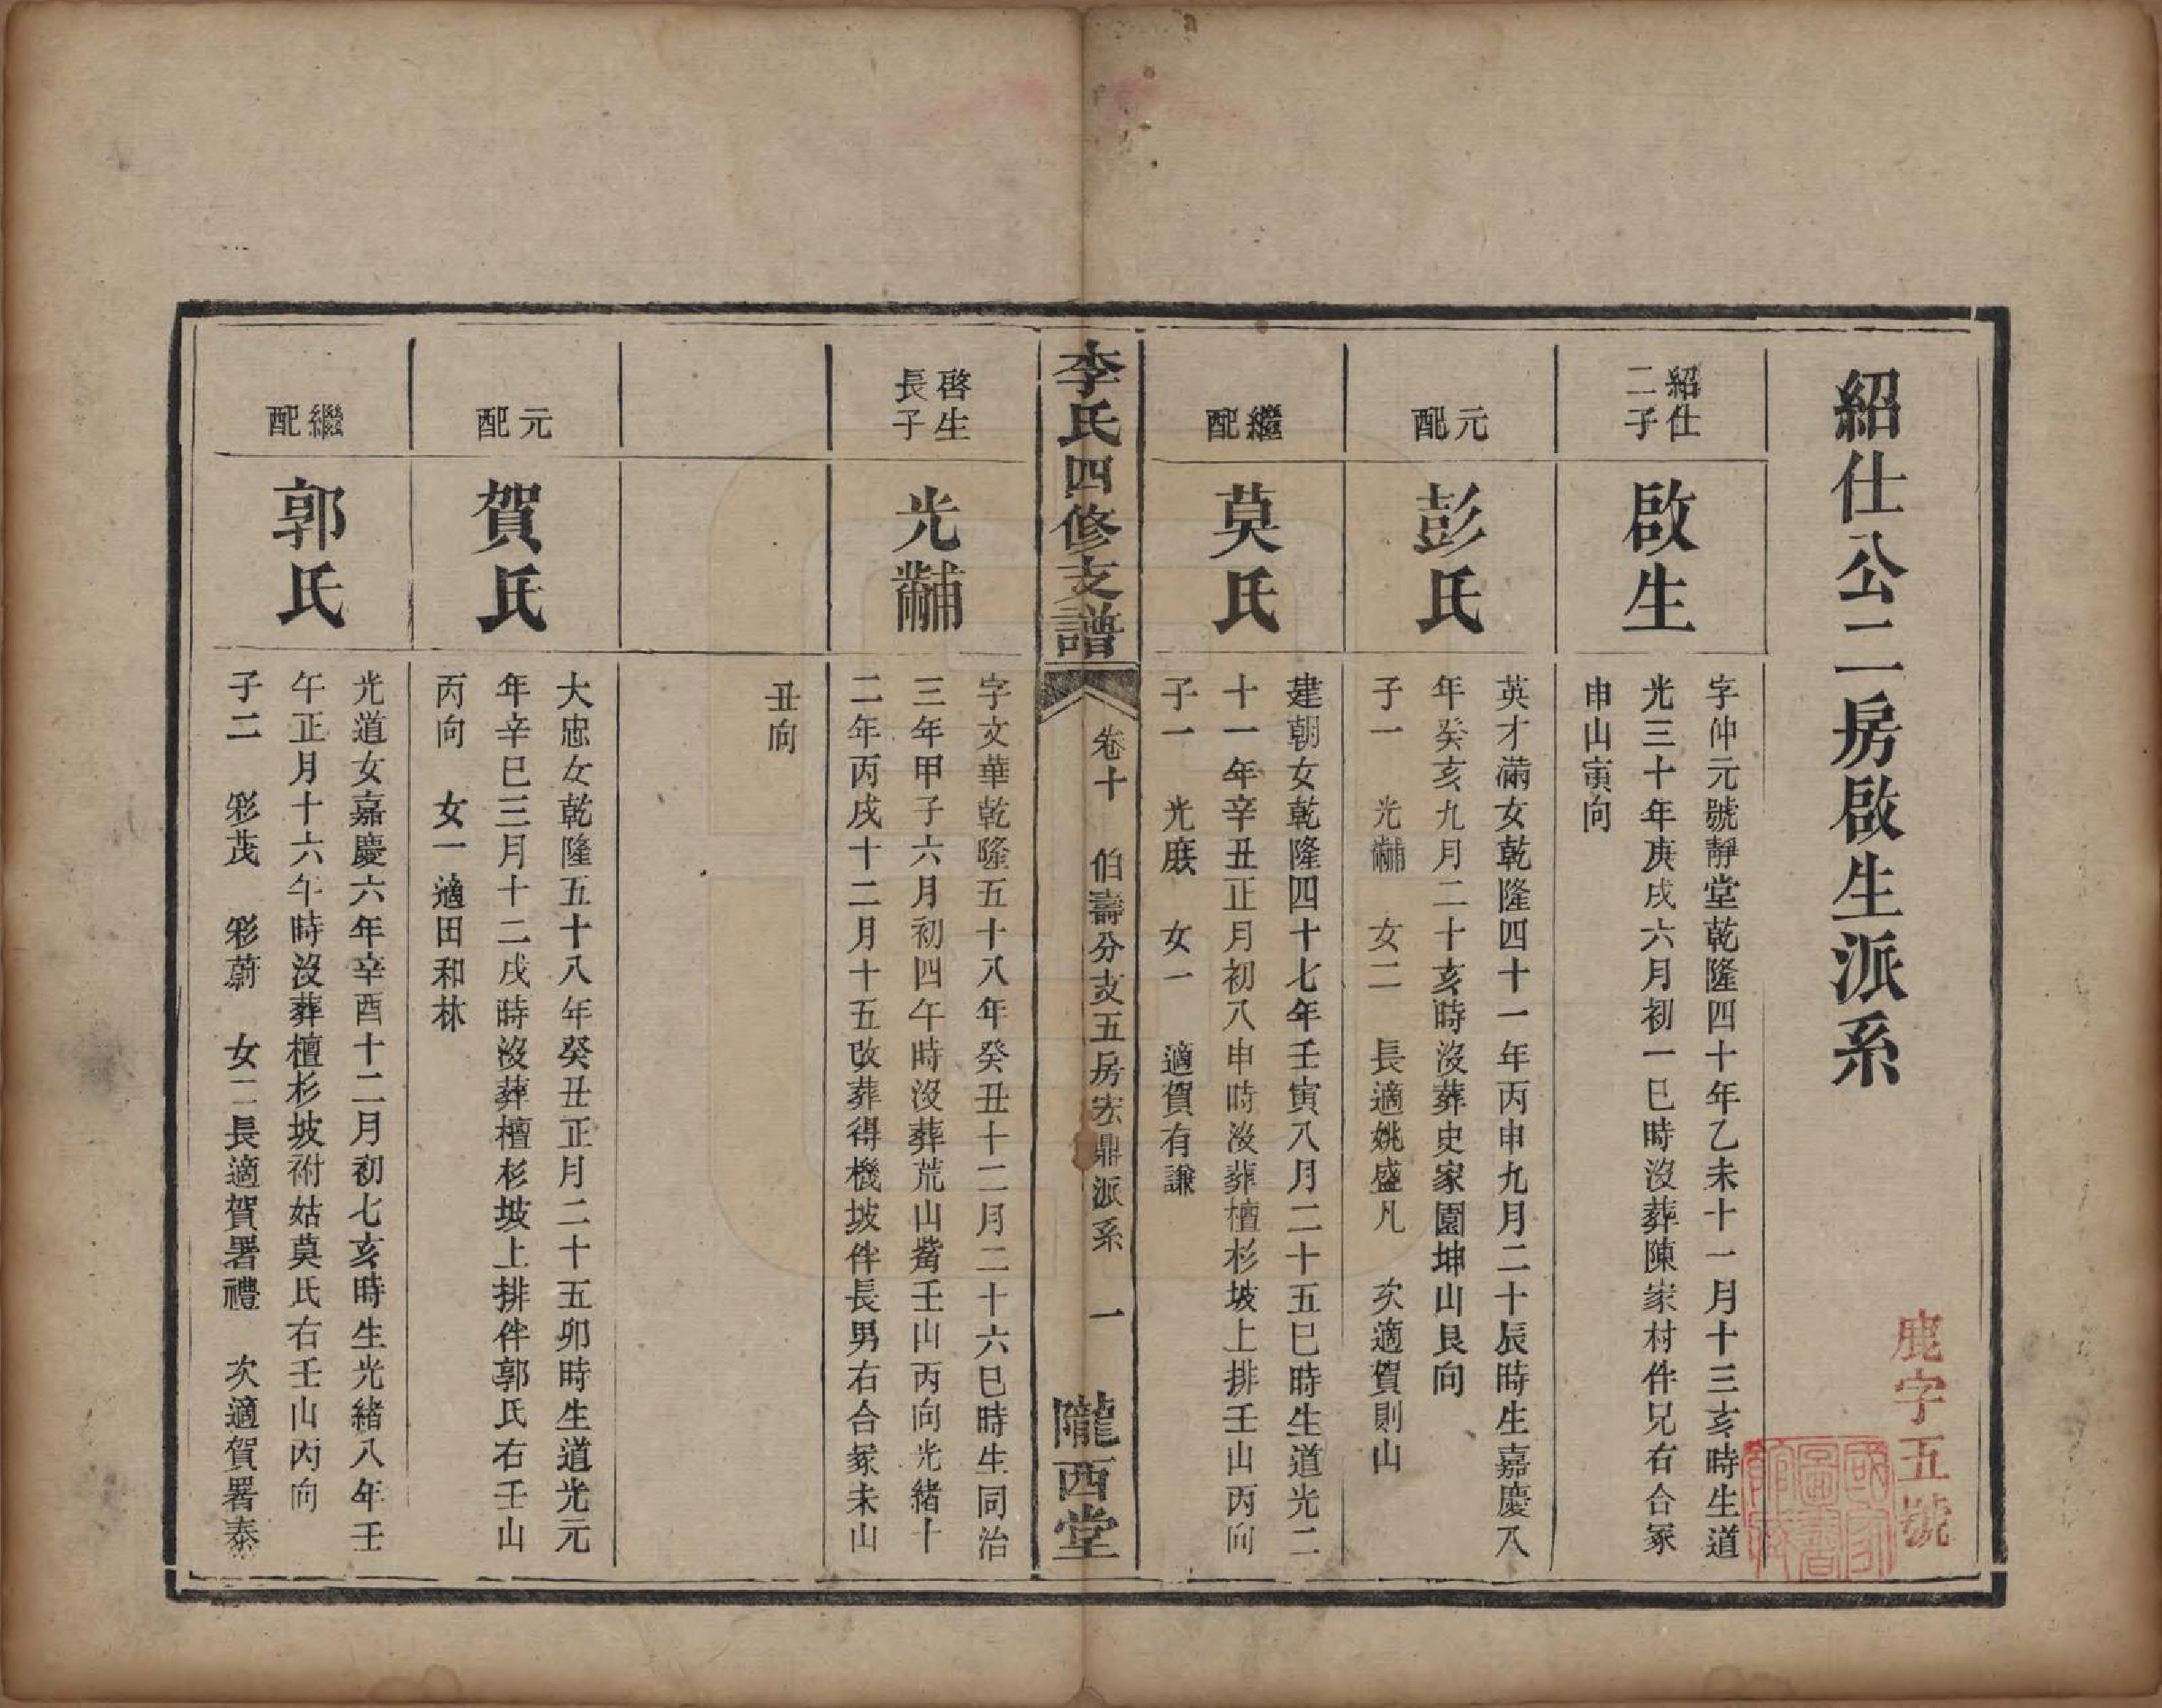 紹仕公二房啟生派系
鹿字五號
紹仕
二子
啟生
字仲元號靜堂乾隆四十年乙未十一月十三亥時生道
光三十年庚戌六月初一巳時沒葬陳家村伴兄右合冢
申山寅向
元配
彭氏
英才滿女乾隆四十一年丙申九月二十辰時生嘉慶八
年癸亥九月二十亥時沒葬史家園坤山艮向
子一 光黼 女二 長適姚盛凡 次適賀則山
繼配
莫氏
建朝女乾隆四十七年壬寅八月二十五巳時生道光二
十一年辛丑正月初八申時沒葬檀杉坡上排壬山丙向
子一 光 女一 適賀有謙
李氏四修支譜
卷十 伯壽分支五房宏鼎派系 一
隴西堂
啓生
長子
光黼
字文華乾隆五十八年癸丑十二月二十六巳時生同治
三年甲子六月初四午時沒葬荒山觜壬山丙向光緒十
二年丙戌十二月十五改葬得機坡伴長男右合冢未山
丑向
元配
賀氏
大忠女乾隆五十八年癸丑正月二十五卯時生道光元
年辛巳三月十二戌時沒葬檀杉坡上排伴郭氏右壬山
丙向 女一適田和林
繼配
郭氏
光道女嘉慶六年辛酉十二月初七亥時生光緒八年壬
午正月十六午時沒葬檀杉坡祔姑莫氏右壬山丙向
子二 彩茂 彩蔚 女二長適賀署禮 次適賀署泰